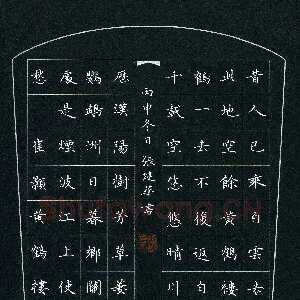 昔人已乘白雲去
此地空餘黃鶴樓
鶴一去不復返白
千載空悠悠晴川
丙申冬日張書
歷漢陽樹芳草萋
鸚鵡洲日暮鄉關
處是煙波江上使
愁 崔顥黃鶴樓